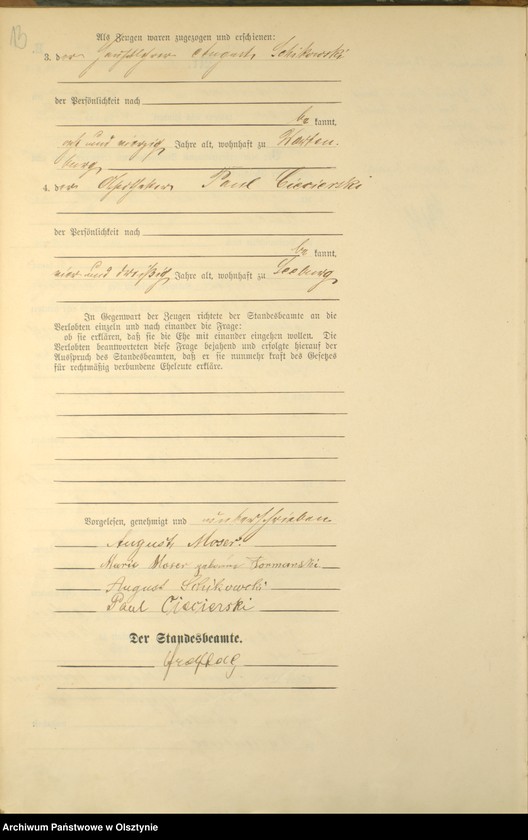 Als Zeugen waren zugezogen und erschienen:
3. der Hauptlehrer August Schikowski
der Persönlichkeit nach
be kannt,
acht und vierzig Jahre alt, wohnhaft zu Warten-
burg
4. der Apotheker Paul Ciecierski
der Persönlichkeit nach
be kannt,
vier und dreißig Jahre alt, wohnhaft zu Seeburg
In Gegenwart der Zeugen richtete der Standesbeamte an die
Verlobten einzeln und nach einander die Frage:
ob sie erklären, daß sie die Ehe mit einander eingehen wollen. Die
Verlobten beantworteten diese Frage bejahend und erfolgte hierauf der
Ausspruch des Standesbeamten, daß er sie nunmehr kraft des Gesetzes
für rechtmäßig verbundene Eheleute erkläre.
Vorgelesen, genehmigt und unterschrieben
August Moser.
Marie Moser geborene
August Schikowski
Paul Ciecierski
Der Standesbeamte.
Archiwum Państwowe w Olsztynie